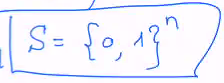 S = {0, 1}ⁿ